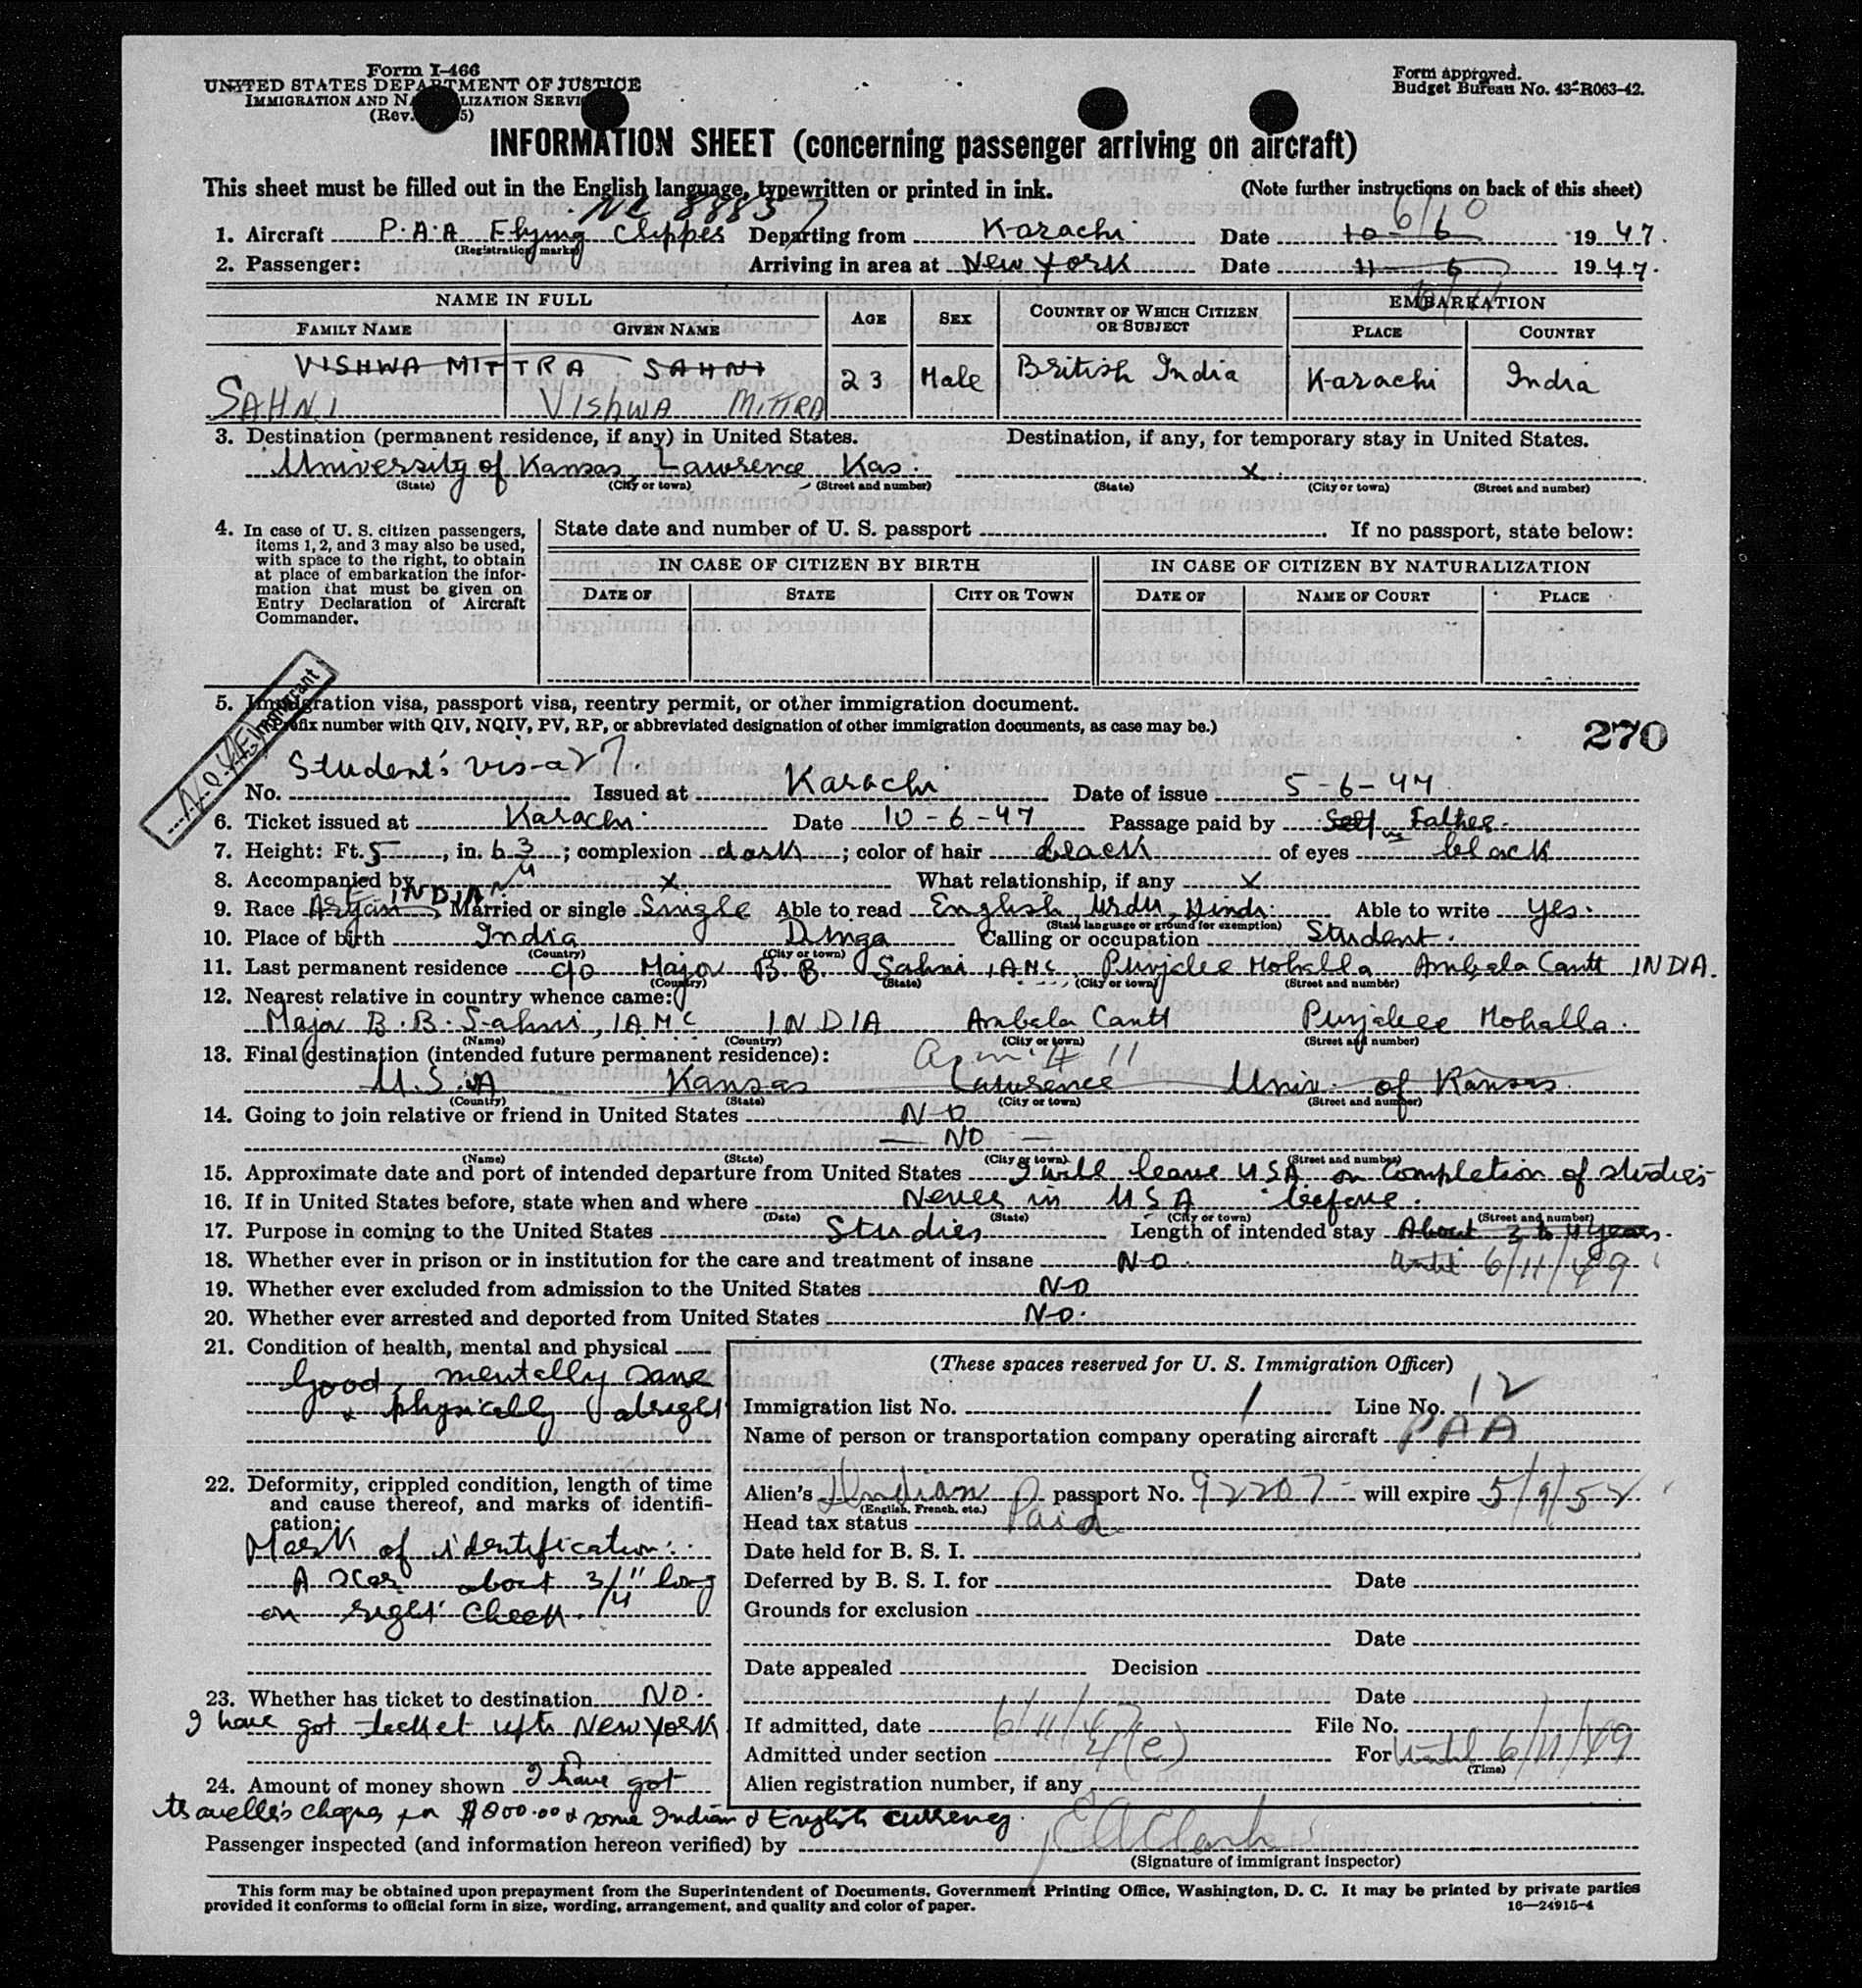 Form I-466
UNITED STATES DEPARTMENT OF JUSTICE
IMMIGRATION AND NATURALIZATION SERVICE
(Rev. 5)
Form approved.
Budget Bureau No. 43-R063-42.
INFORMATION SHEET (concerning passenger arriving on aircraft)
This sheet must be filled out in the English language, typewritten or printed in ink. (Note further instructions on back of this sheet)
NC 88857 6/10
1. Aircraft P.A.A Flying Clipper Departing from Karachi Date 10-6 1947.
(Registration marks)
2. Passenger: Arriving in area at New York Date 11-6 1947.
6/11
NAME IN FULL AGE SEX COUNTRY OF WHICH CITIZEN OR SUBJECT EMBARKATION
FAMILY NAME GIVEN NAME PLACE COUNTRY
VISHWA MITTRA SAHNI 23 Male British India Karachi India
SAHNI VISHWA MITTRA
3. Destination (permanent residence, if any) in United States. Destination, if any, for temporary stay in United States.
University of Kansas, Lawrence Kas. x
(State) (City or town) (Street and number) (State) (City or town) (Street and number)
4. In case of U. S. citizen passengers, items 1, 2, and 3 may also be used, with space to the right, to obtain at place of embarkation the information that must be given on Entry Declaration of Aircraft Commander.
State date and number of U. S. passport If no passport, state below:
IN CASE OF CITIZEN BY BIRTH IN CASE OF CITIZEN BY NATURALIZATION
DATE OF STATE CITY OR TOWN DATE OF NAME OF COURT PLACE
5. Immigration visa, passport visa, reentry permit, or other immigration document.
(Prefix number with QIV, NQIV, PV, RP, or abbreviated designation of other immigration documents, as case may be.) 270
Student's visa 27.
No. Issued at Karachi Date of issue 5-6-47
6. Ticket issued at Karachi Date 10-6-47 Passage paid by Self Father.
7. Height: Ft. 5, in. 6 3/4; complexion dark; color of hair black of eyes black
8. Accompanied by x What relationship, if any x
E. INDIAN
9. Race Aryan, Married or single Single Able to read English, Urdu, Hindi Able to write Yes.
(State language or ground for exemption)
10. Place of birth India Dinga Calling or occupation Student.
(Country) (City or town)
11. Last permanent residence c/o Major B B Sahni IAMC, Punjalee Mohalla Ambala Cantt INDIA.
(Country) (State) (City or town) (Street and number)
12. Nearest relative in country whence came:
Major B. B. Sahni, IAMC INDIA Ambala Cantt Punjalee Mohalla.
(Name) (Country) (City or town) (Street and number)
13. Final destination (intended future permanent residence):
U.S.A Kansas Lawrence Univ. of Kansas.
(Country) (State) (City or town) (Street and number)
14. Going to join relative or friend in United States NO
— NO —
(Name) (State) (City or town) (Street and number)
15. Approximate date and port of intended departure from United States I will leave USA on completion of studies
16. If in United States before, state when and where Never in USA before.
(Date) (State) (City or town) (Street and number)
17. Purpose in coming to the United States Studies Length of intended stay About 3 to 4 years.
18. Whether ever in prison or in institution for the care and treatment of insane NO until 6/11/49
19. Whether ever excluded from admission to the United States NO
20. Whether ever arrested and deported from United States NO.
21. Condition of health, mental and physical
Good, mentally sane
& physically alright
(These spaces reserved for U. S. Immigration Officer)
Immigration list No. 1 Line No. 12
Name of person or transportation company operating aircraft PAA
22. Deformity, crippled condition, length of time and cause thereof, and marks of identification:
Mark of identification:
A scar about 3/4" long
on right cheek.
Alien's Indian passport No. 92207 will expire 5/9/52
(English, French, etc.)
Head tax status Paid
Date held for B. S. I.
Deferred by B. S. I. for Date
Grounds for exclusion
Date
Date appealed Decision
Date
23. Whether has ticket to destination NO.
I have got ticket upto New York
If admitted, date 6/11/47 File No.
Admitted under section 4(e) For Until 6/11/49
(Time)
24. Amount of money shown I have got
traveller's cheques for $800.00 & some Indian & English currency.
Alien registration number, if any
Passenger inspected (and information hereon verified) by E A Clark
(Signature of immigrant inspector)
This form may be obtained upon prepayment from the Superintendent of Documents, Government Printing Office, Washington, D. C. It may be printed by private parties
provided it conforms to official form in size, wording, arrangement, and quality and color of paper. 16—24915-4